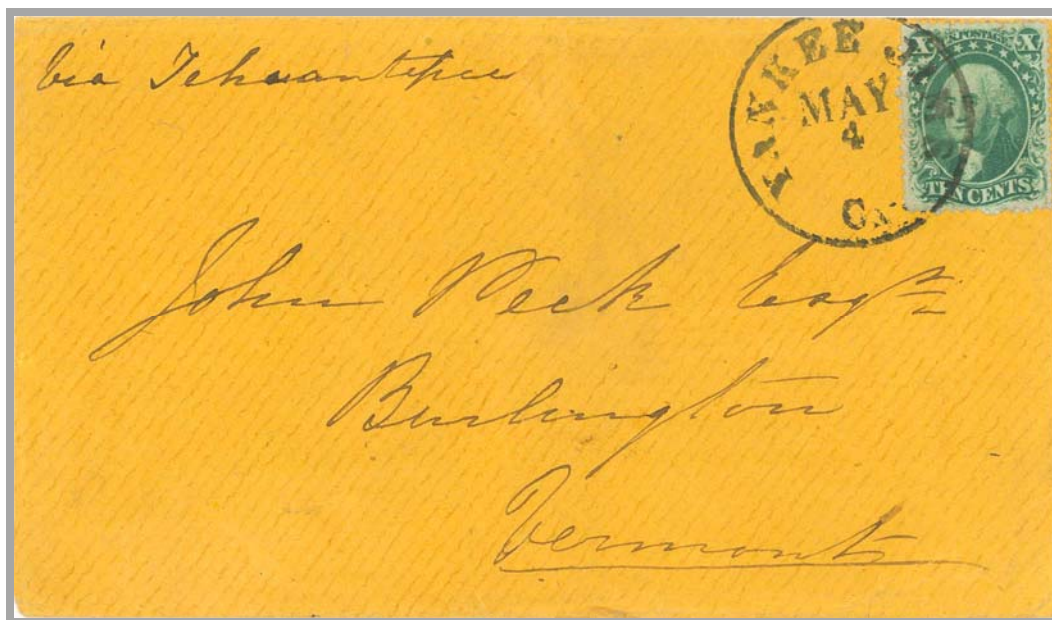 Via Tehuantepec
YANKEE JIMS
MAY
4
CAL
X U.S. POSTAGE X
TEN CENTS
John Peck Esqr
Burlington
Vermont